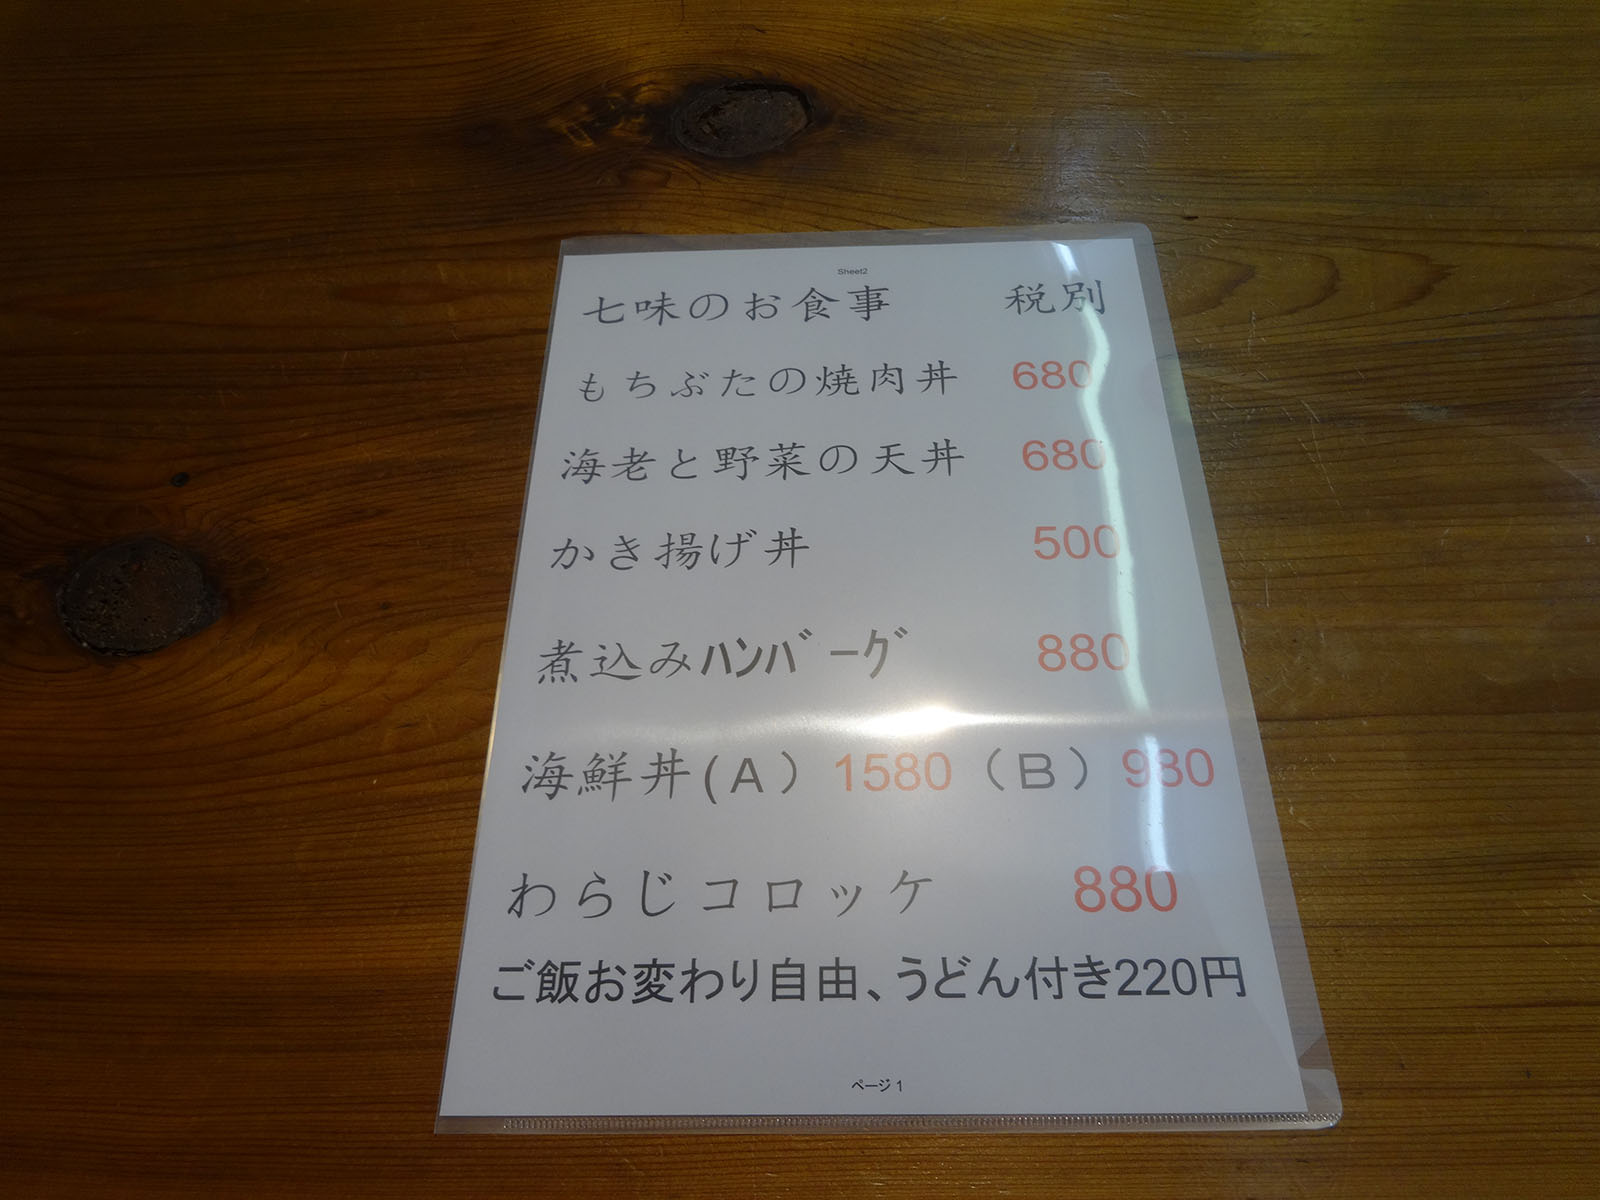 Sheet2
七味のお食事 税別
もちぶたの焼肉丼 680
海老と野菜の天丼 680
かき揚げ丼 500
煮込みﾊﾝﾊﾞｰｸﾞ 880
海鮮丼(A）1580（B）980
わらじコロッケ 880
ご飯お変わり自由、うどん付き220円
ページ 1